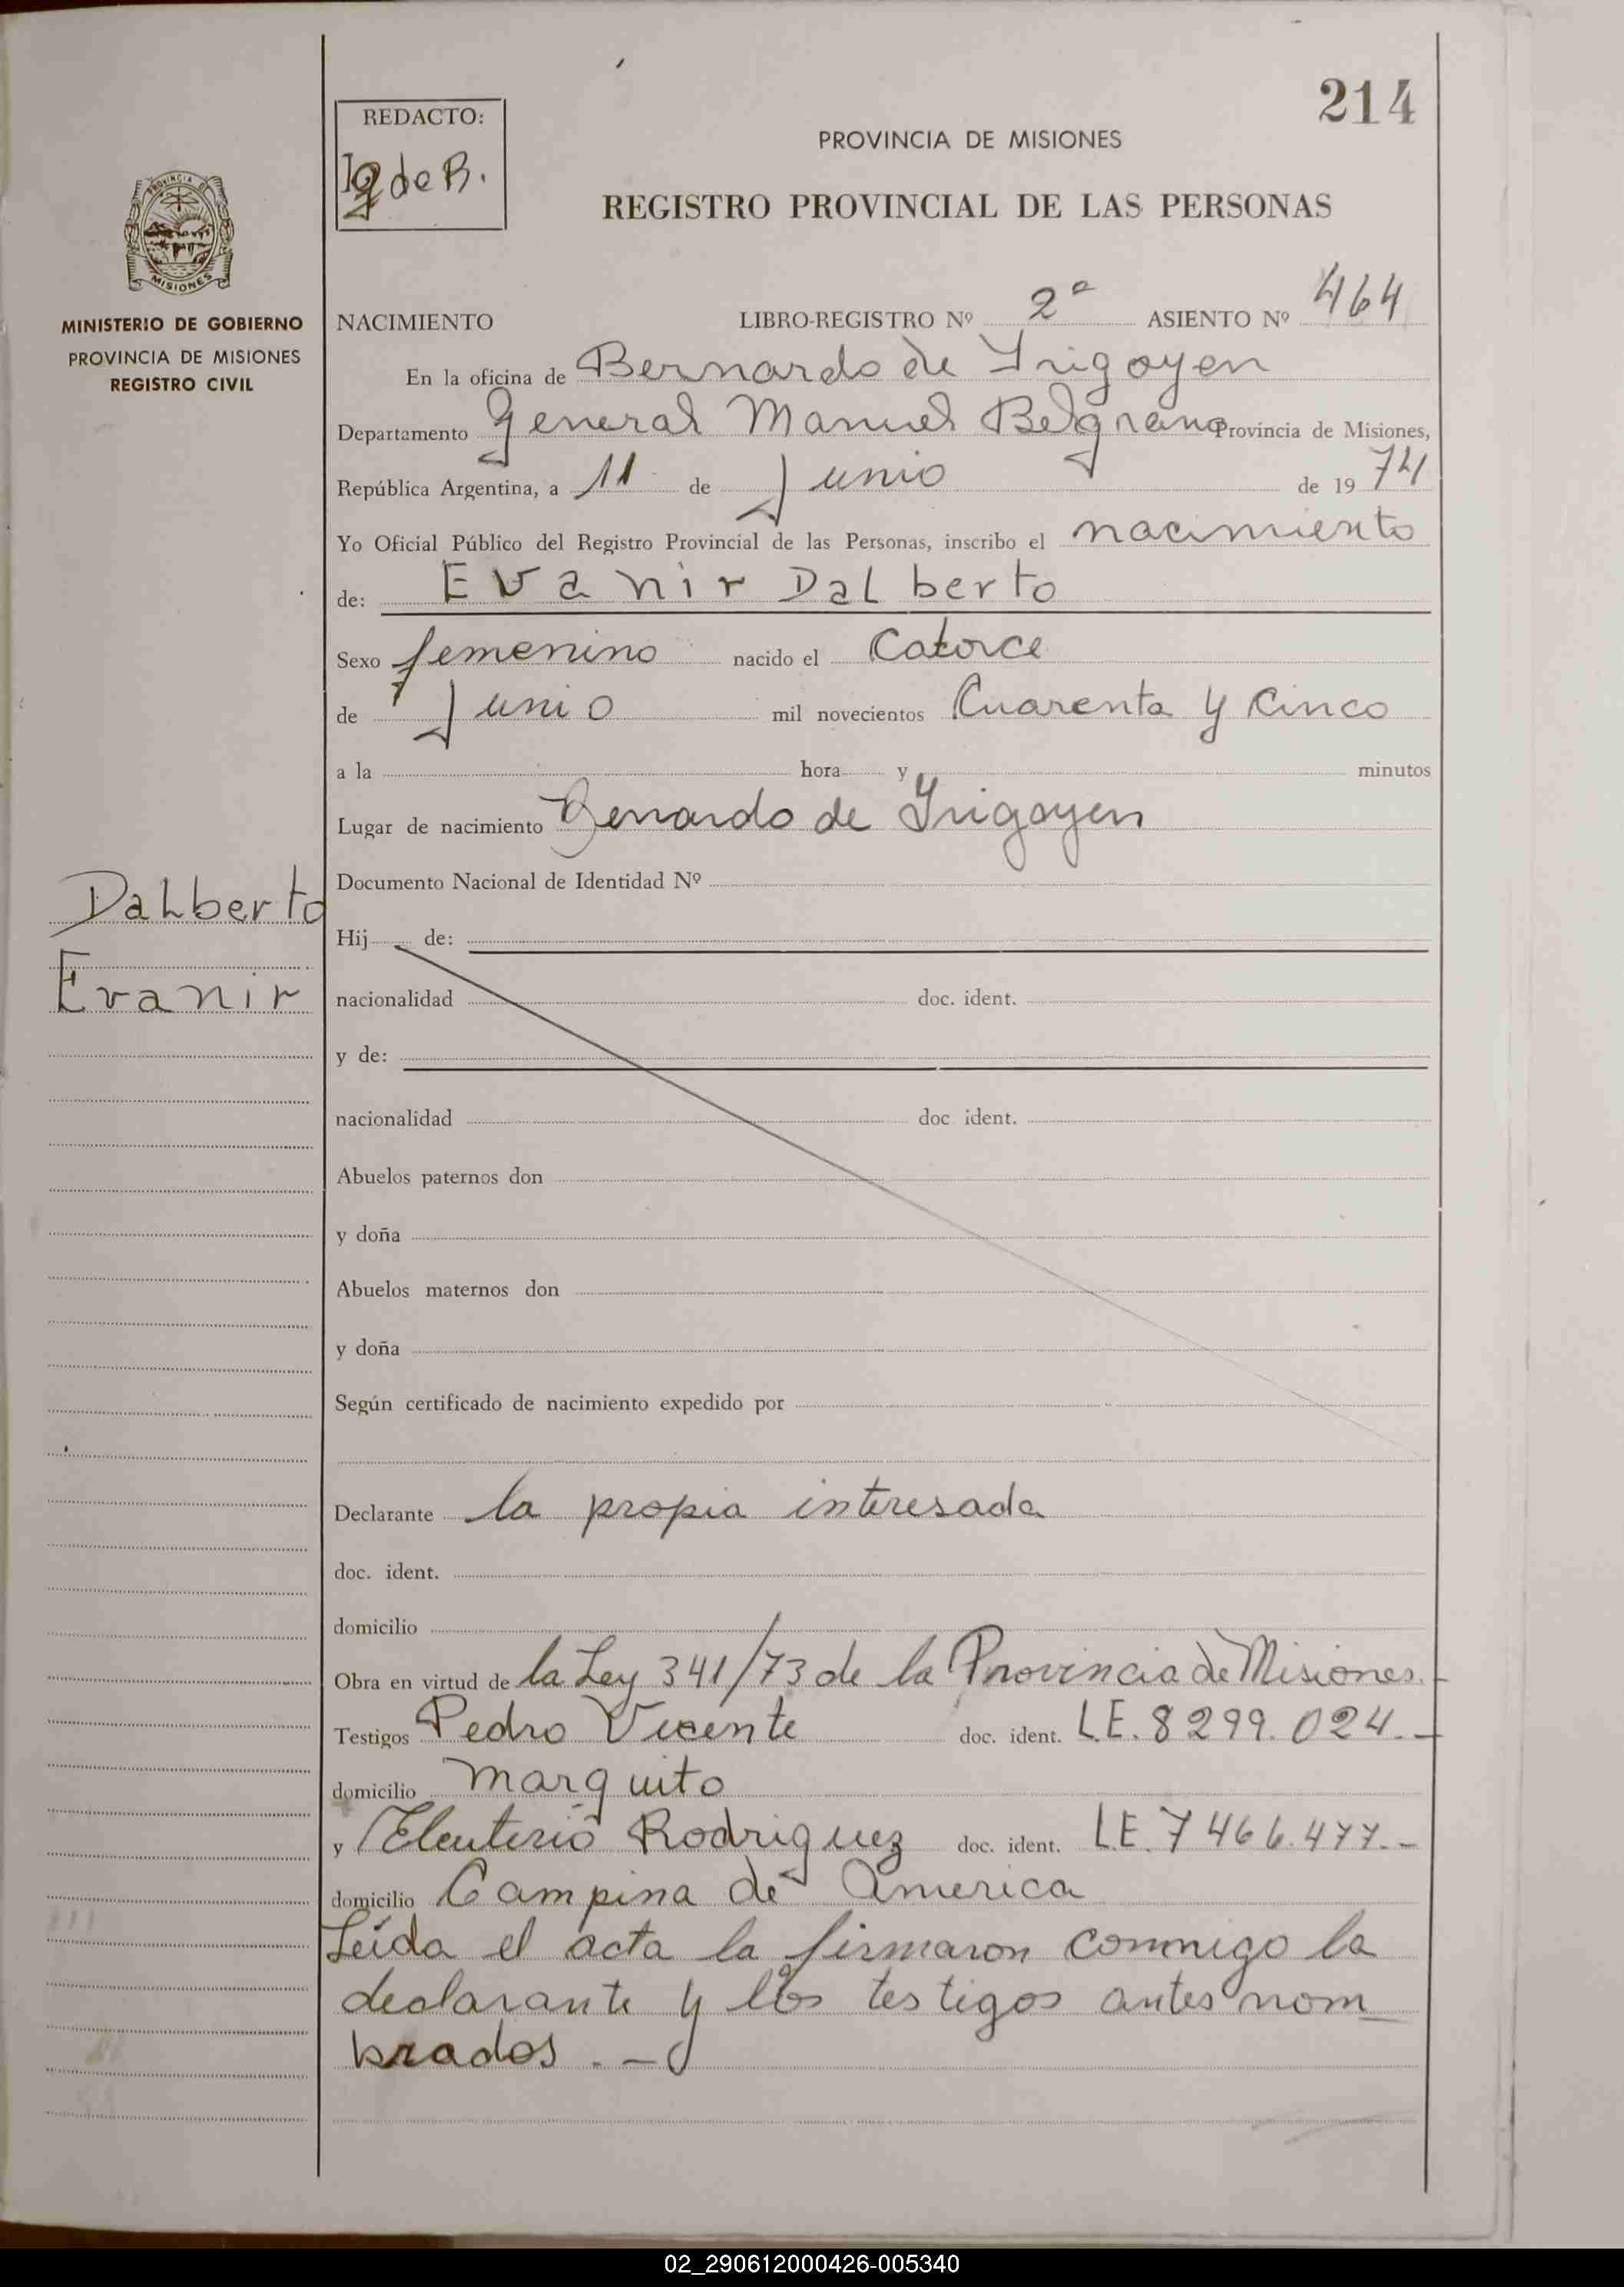 214
REDACTO:
Ig de B.
PROVINCIA DE MISIONES
REGISTRO PROVINCIAL DE LAS PERSONAS
PROVINCIA DE
MISIONES
MINISTERIO DE GOBIERNO
PROVINCIA DE MISIONES
REGISTRO CIVIL
NACIMIENTO LIBRO-REGISTRO Nº 2ª ASIENTO Nº 464
En la oficina de Bernardo de Irigoyen
Departamento General Manuel Belgrano Provincia de Misiones,
República Argentina, a 11 de Junio de 1974
Yo Oficial Público del Registro Provincial de las Personas, inscribo el nacimiento
de: Evanir Dalberto
Sexo femenino nacido el Catorce
de Junio mil novecientos Cuarenta y Cinco
a la hora y minutos
Lugar de nacimiento Bernardo de Irigoyen
Documento Nacional de Identidad Nº
Dalberto
Evanir
Hij de:
nacionalidad doc. ident.
y de:
nacionalidad doc ident.
Abuelos paternos don
y doña
Abuelos maternos don
y doña
Según certificado de nacimiento expedido por
Declarante la propia interesada
doc. ident.
domicilio
Obra en virtud de la Ley 341/73 de la Provincia de Misiones.-
Testigos Pedro Vicente doc. ident. L.E. 8299.024.-
domicilio Marquito
y Eleuterio Rodriguez doc. ident. L.E. 7466.477.-
domicilio Campina de America
Leída el acta la firmaron conmigo la
declarante y los testigos antes nom
brados.-
02_290612000426-005340